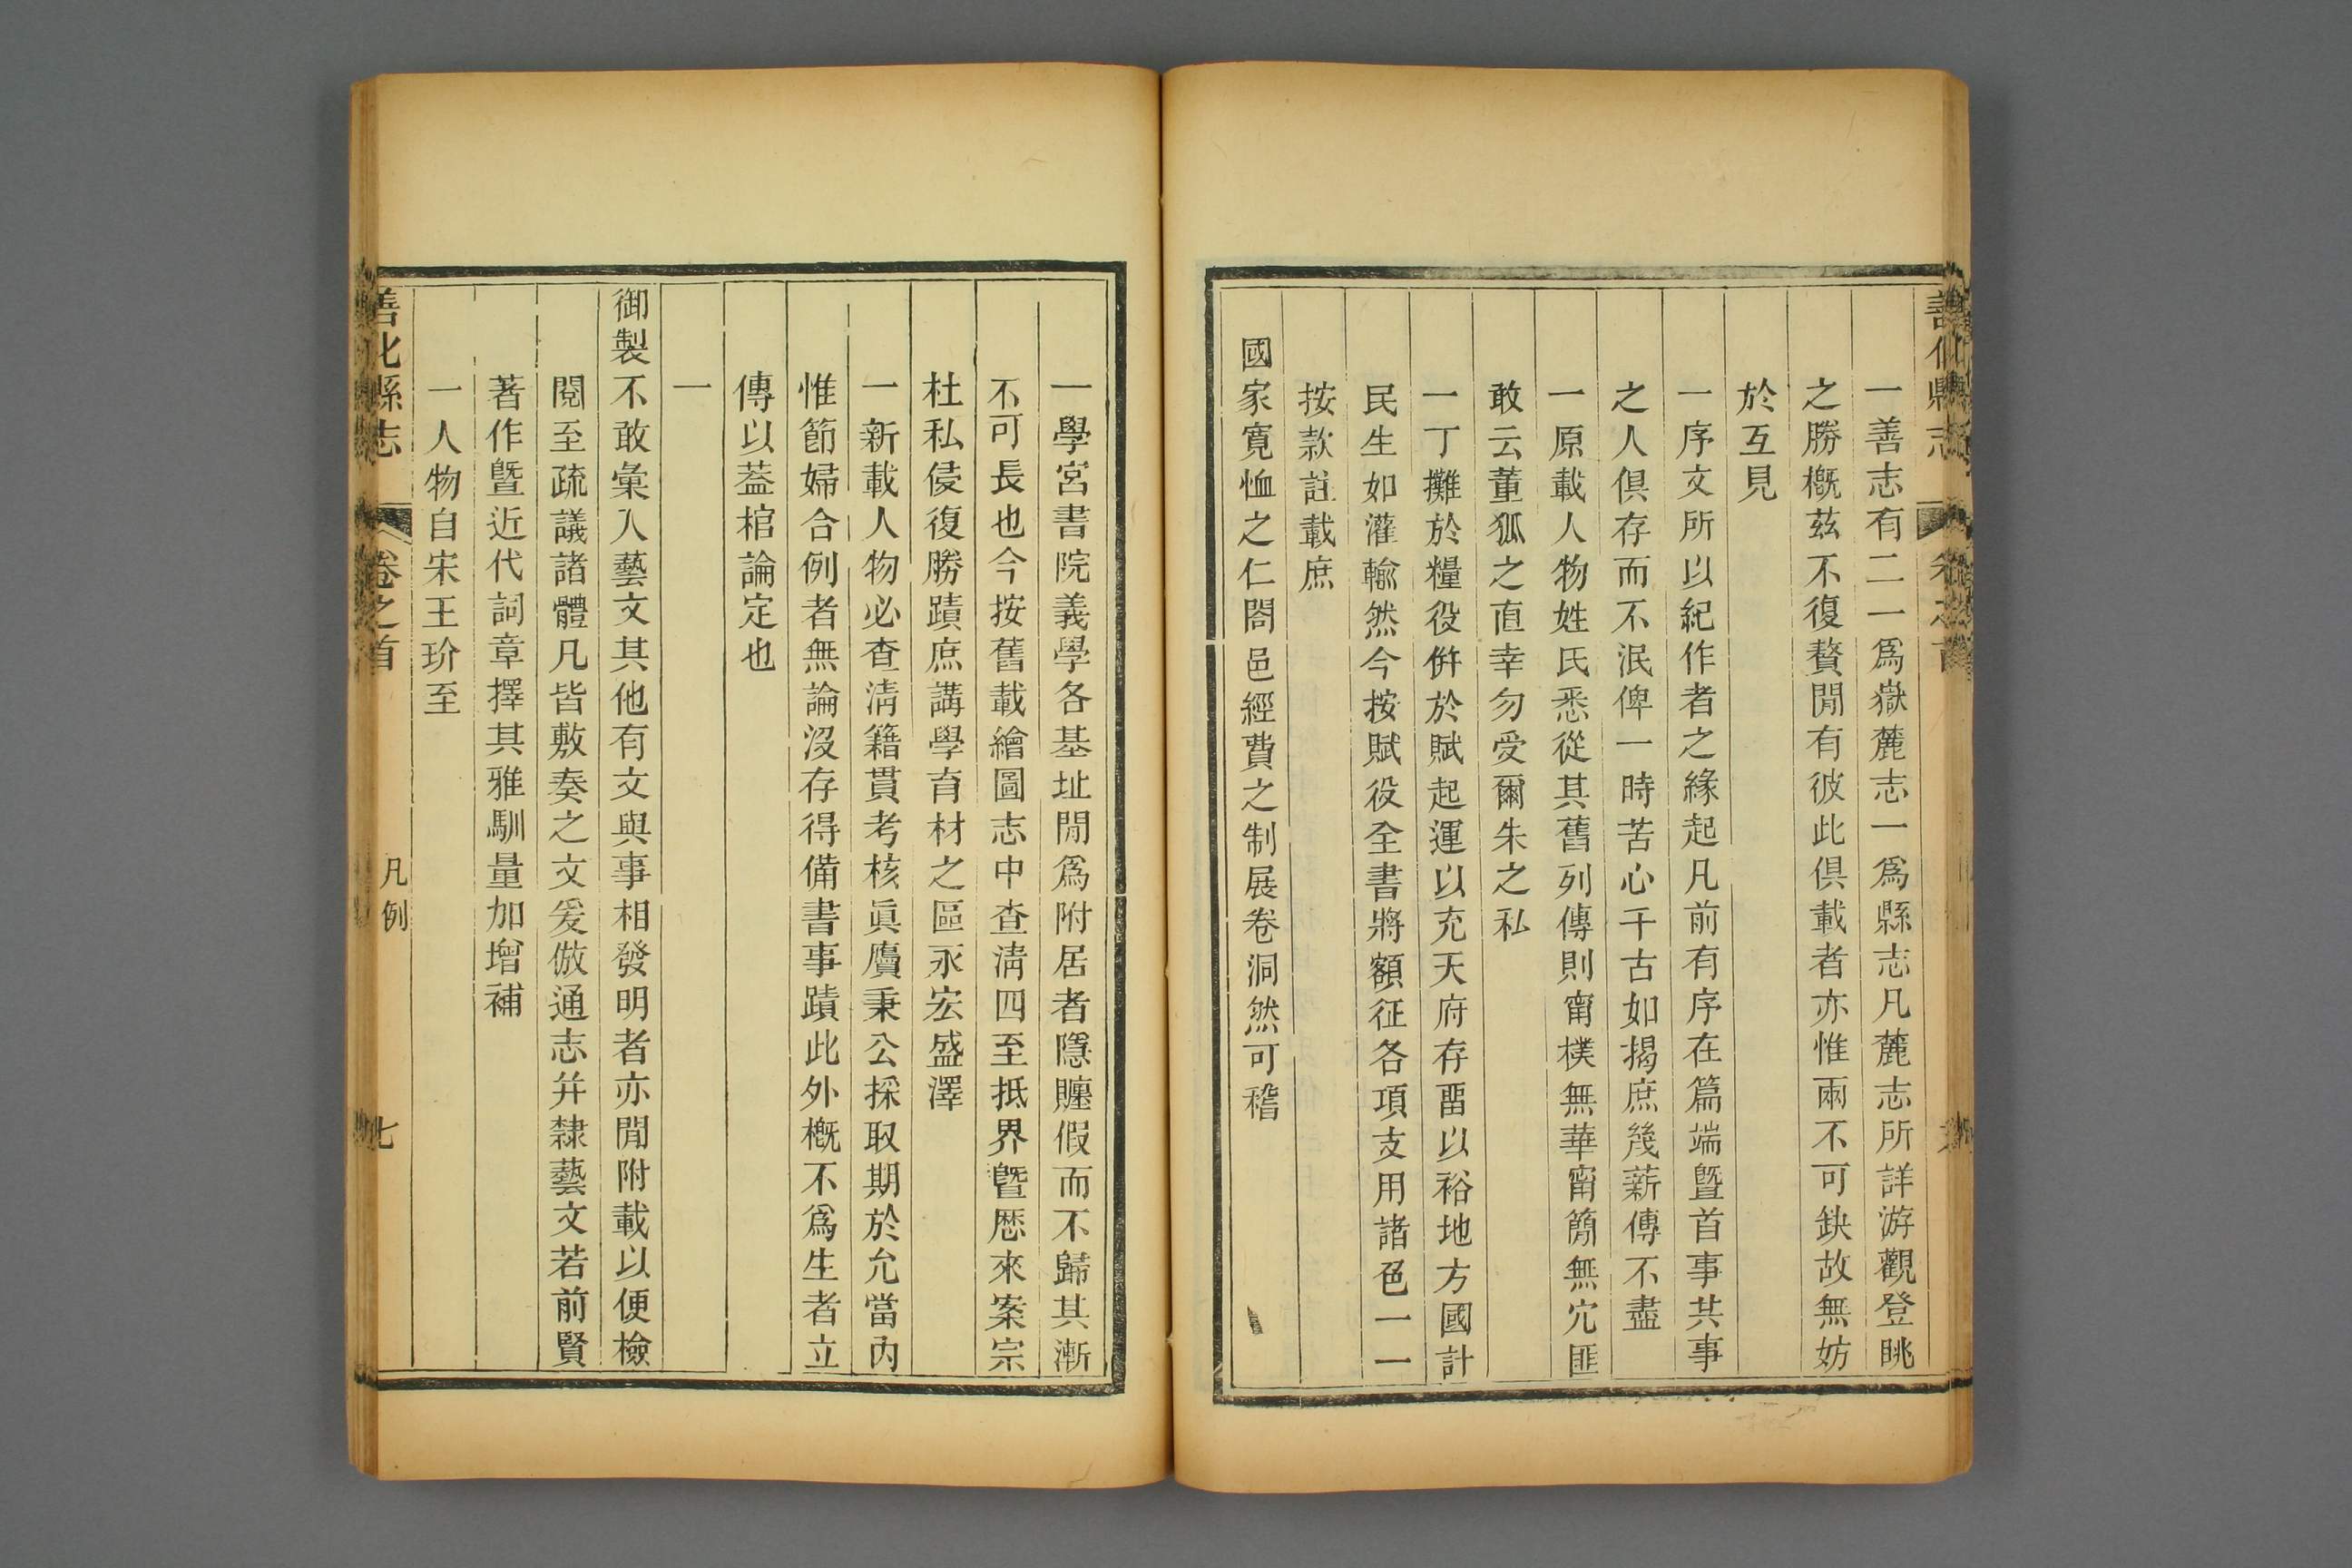 一善志有二一爲嶽麓志一爲縣志凡麓志所詳游觀登眺
之勝槪茲不復贅閒有彼此俱載者亦惟兩不可缺故無妨
於互見
一序文所以紀作者之緣起凡前有序在篇端曁首事共事
之人俱存而不泯俾一時苦心千古如揭庶幾薪傳不盡
一原載人物姓氏悉從其舊列傳則甯樸無華甯簡無宂匪
敢云董狐之直幸勿受爾朱之私
一丁攤於糧役併於賦起運以充天府存畱以裕地方國計
民生如灌輸然今按賦役全書將額征各項支用諸色一一
按款註載庶
國家寬恤之仁閤邑經費之制展卷洞然可稽
一學宮書院義學各基址閒爲附居者隱贍假而不歸其漸
不可長也今按舊載繪圖志中查淸四至抵界曁歷來案宗
杜私侵復勝蹟庶講學育材之區永宏盛澤
一新載人物必查淸籍貫考核眞贗秉公採取期於允當內
惟節婦合例者無論沒存得備書事蹟此外槪不爲生者立
傳以蓋棺論定也
一
御製不敢彙入藝文其他有文與事相發明者亦閒附載以便檢
閱至疏議諸體凡皆敷奏之文爰倣通志并隸藝文若前賢
著作曁近代詞章擇其雅馴量加增補
一人物自宋王玠至
善化縣志 卷之首 凡例 七